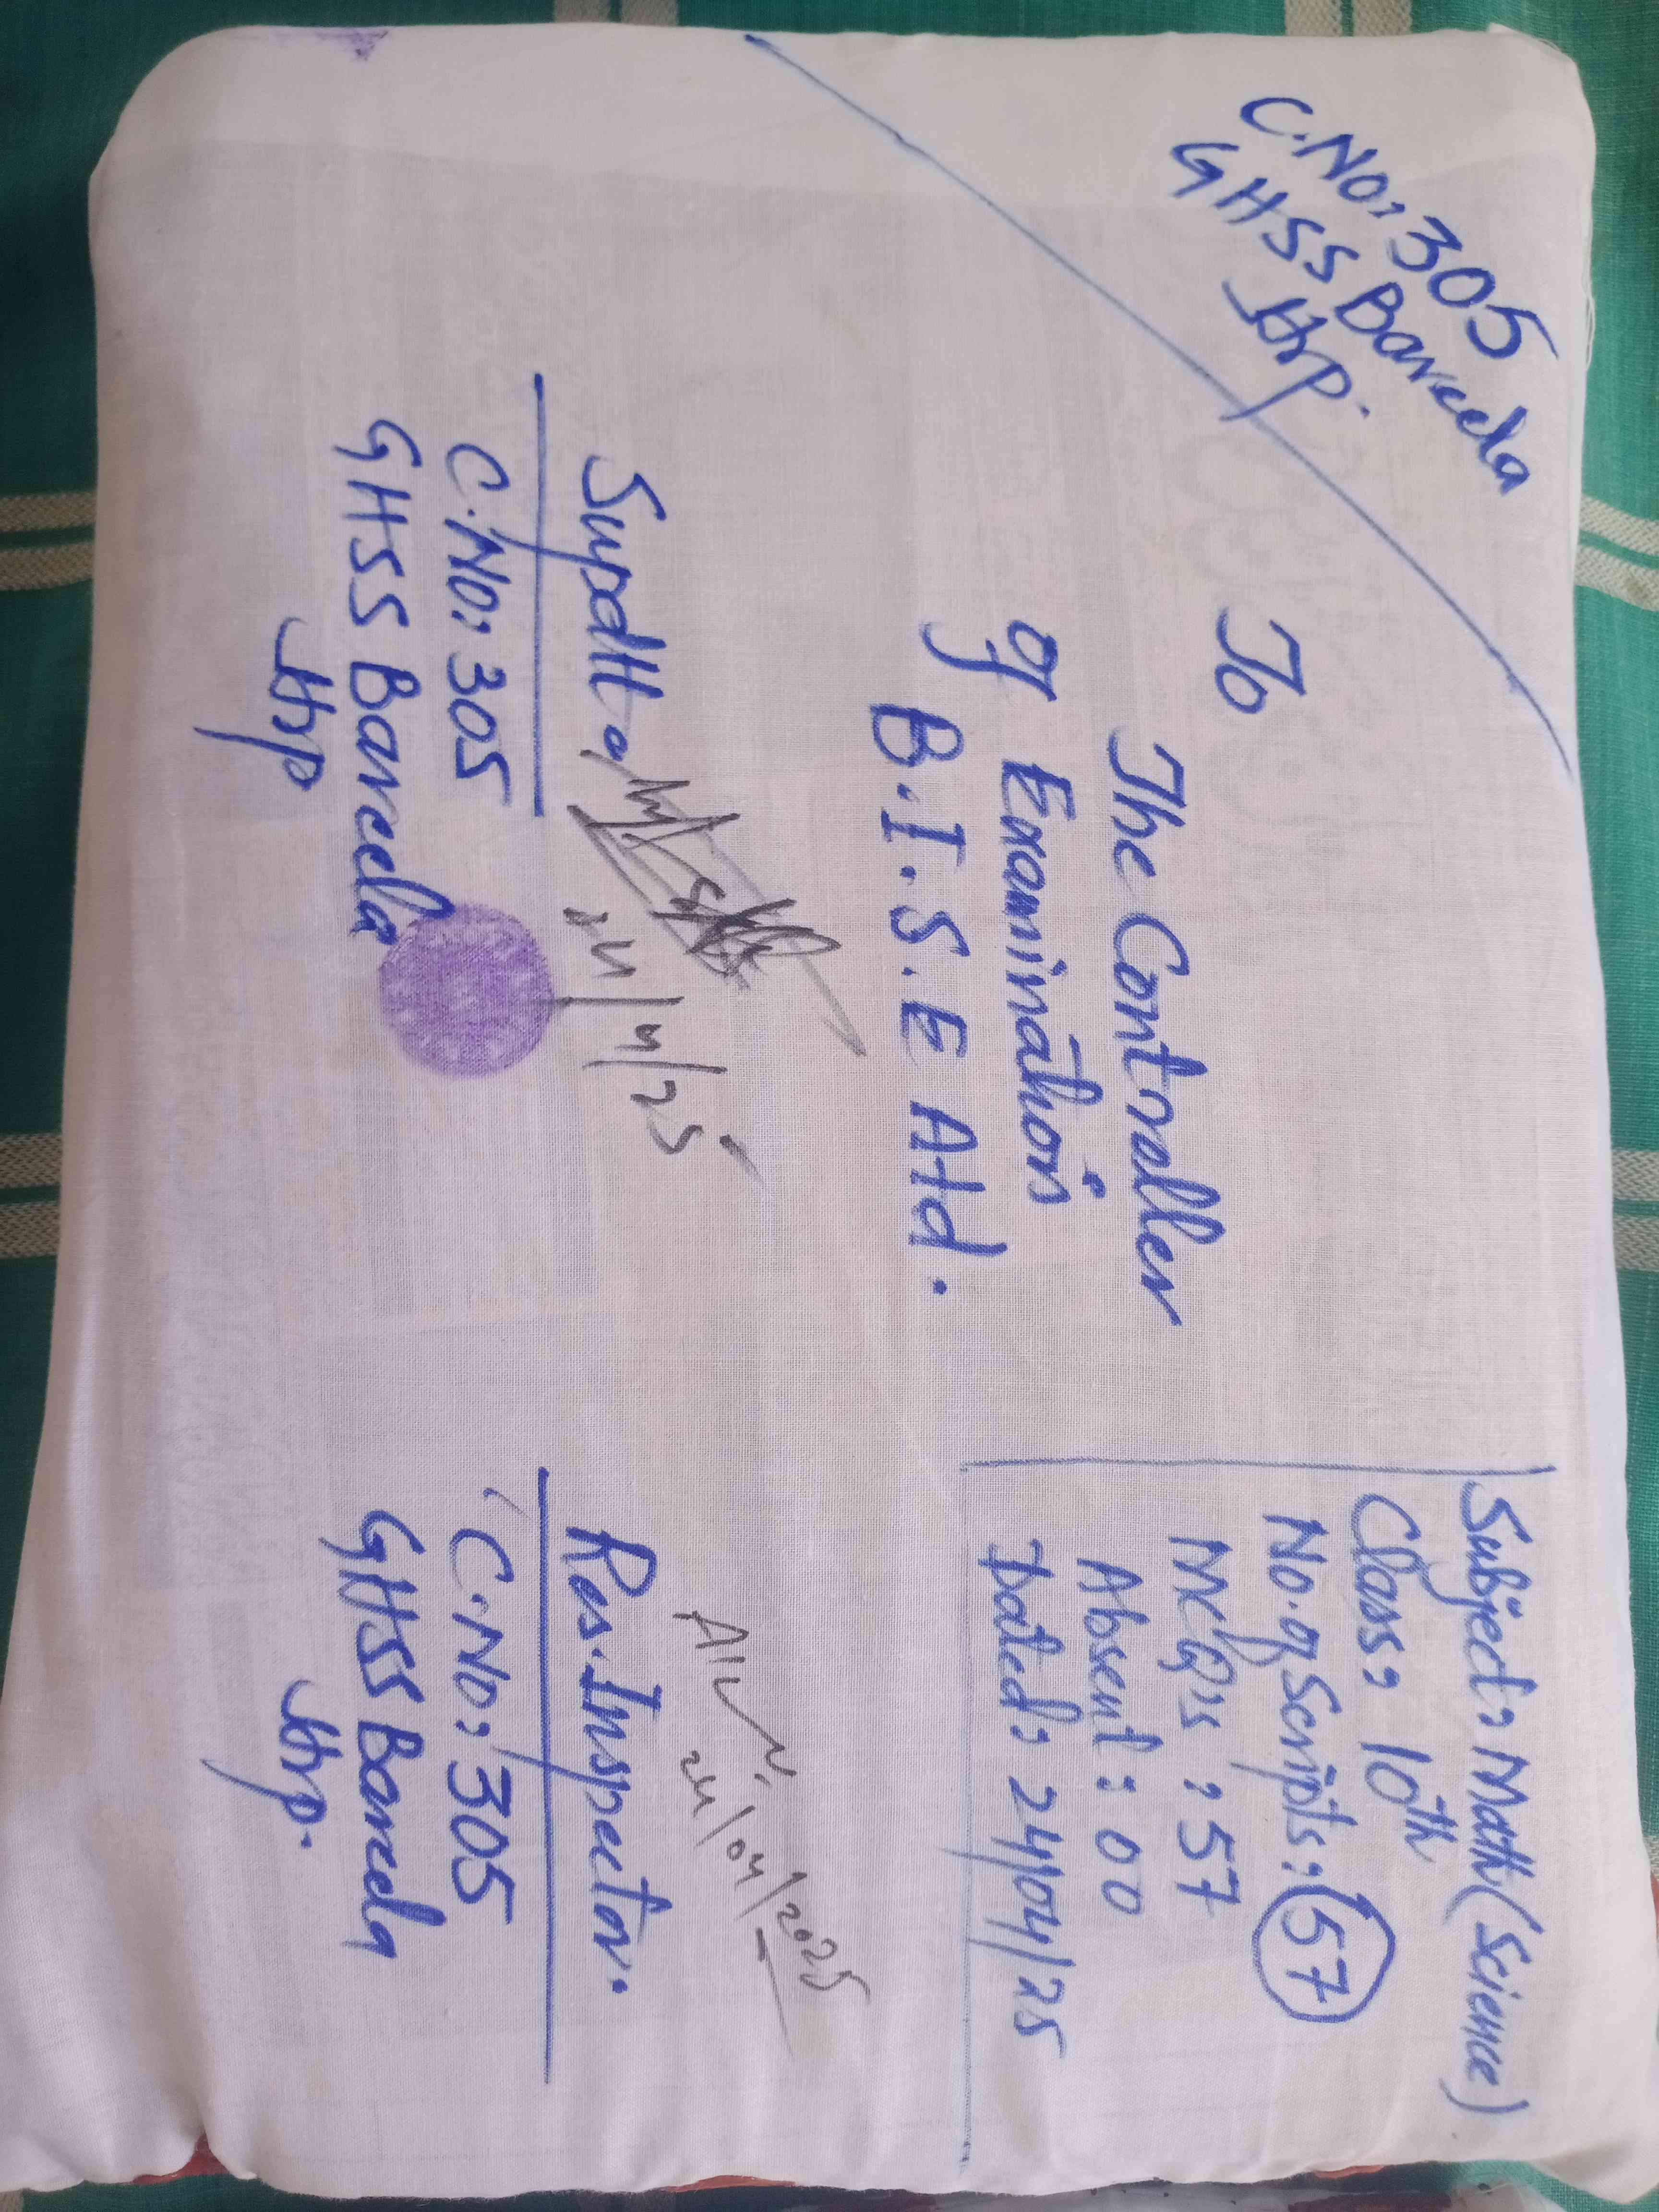 C.No: 305
GHSS Bareela
Hrp.
Subject: Math (Science)
Class: 10th
No. of Scripts: 57
MCQ's : 57
Absent : 00
Dated: 24/04/25
To
The Controller
of Examination
B.I.S.E Atd.
24/4/25
Supdtt:
C.No: 305
GHSS Bareela
Hrp
24/04/2025
Res. Inspector.
C.No: 305
GHSS Bareela
Hrp.